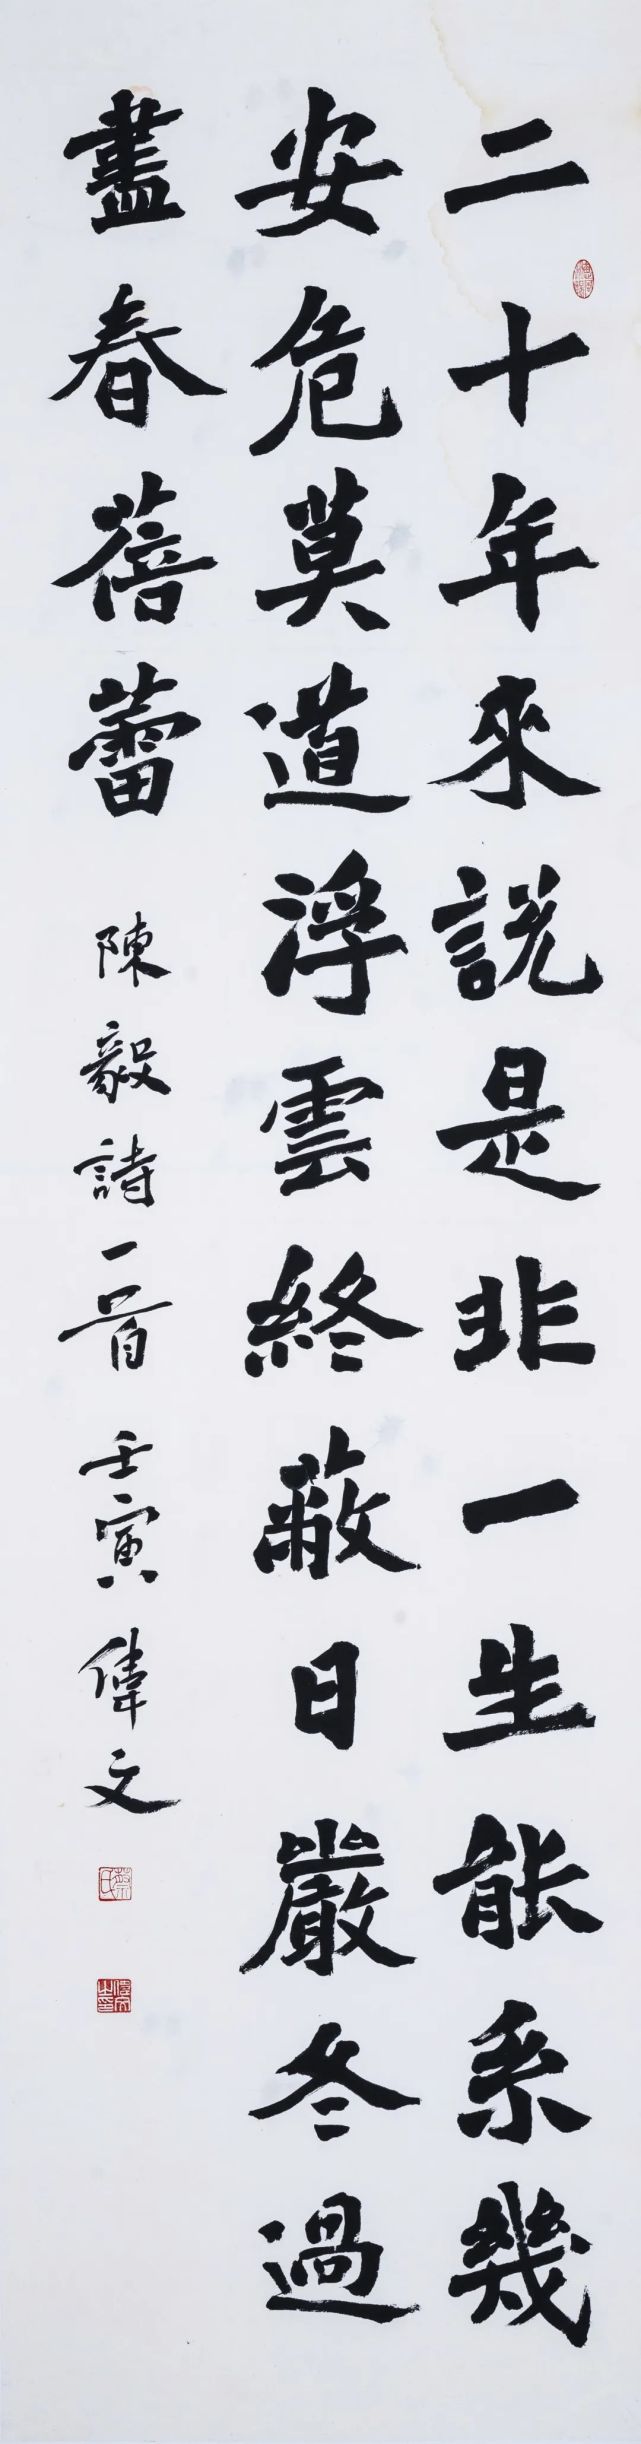 二十年來説是非一生能系幾
安危莫道浮雲終蔽日嚴冬過
盡春蓓蕾
陳毅詩一首 壬寅 偉文